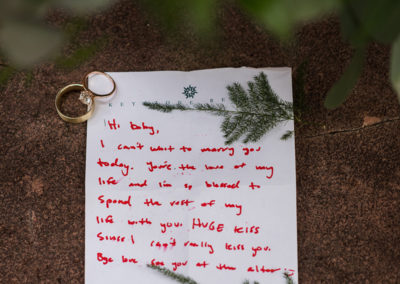 KEY
Hi baby,
I can't wait to marry you
today. You're the love of my
life and I'm so blessed to
spend the rest of my
life with you. HUGE kiss
Since I can't really kiss you.
Bye love see you at the altar